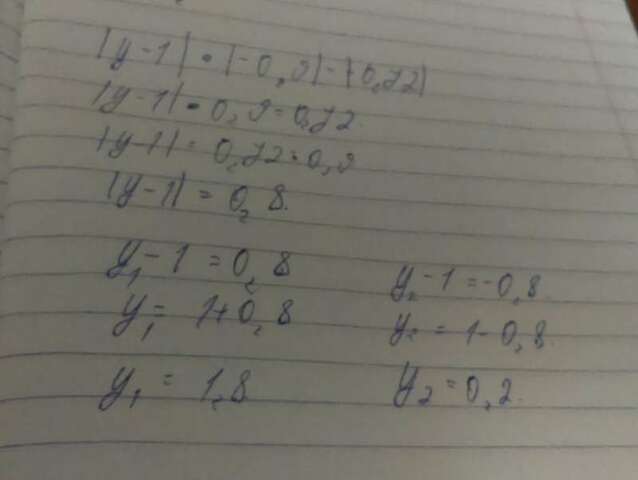 |y-1| • |-0,9| = |0,72|
|y-1| • 0,9 = 0,72
|y-1| = 0,72 : 0,9
|y-1| = 0,8
y₁ - 1 = 0,8
y₁ = 1+0,8
y₁ = 1,8
y₂ - 1 = -0,8
y₂ = 1 - 0,8
y₂ = 0,2